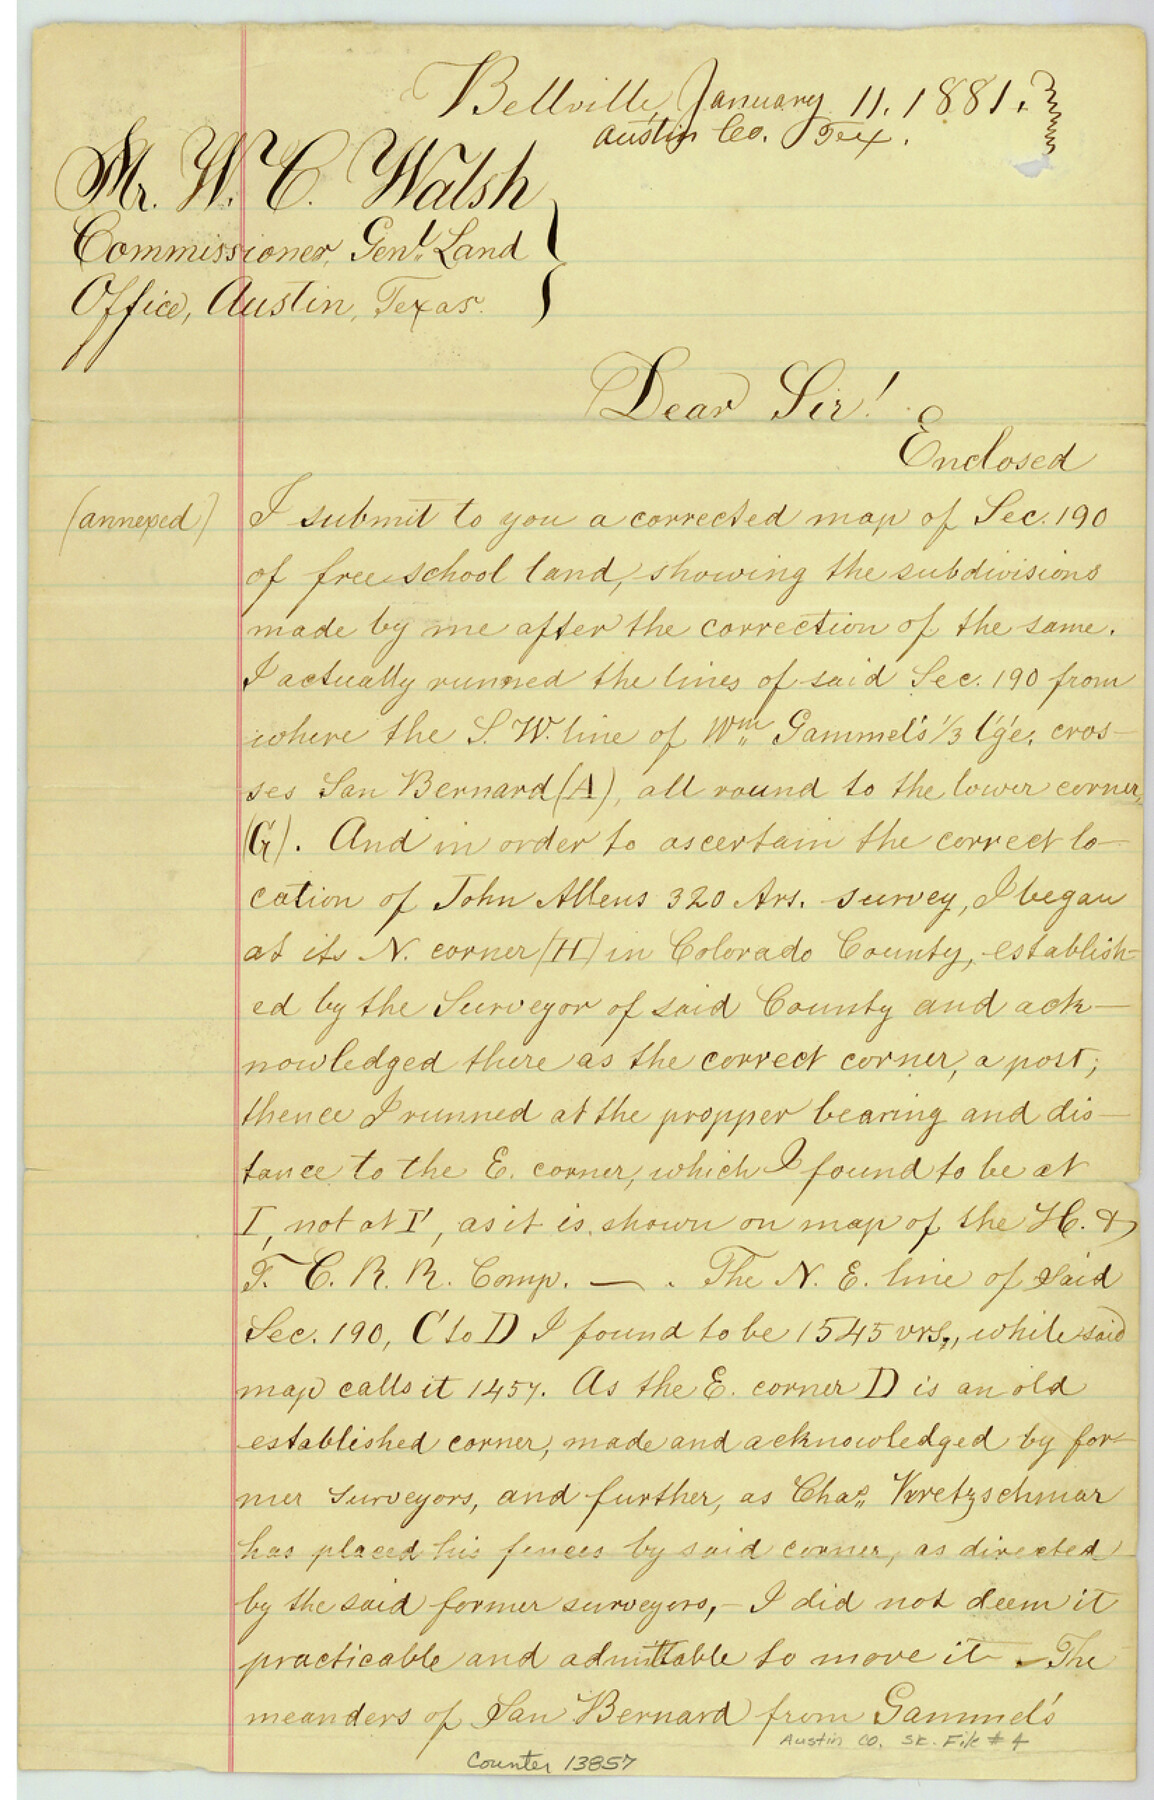 Bellville, January 11. 1881.
Austin Co. Tex.
Mr. W. C. Walsh
Commissioner, Genl. Land
Office, Austin, Texas.
Dear Sir!
Enclosed
(annexed) I submit to you a corrected map of Sec. 190
of free school land, showing the subdivisions
made by me after the correction of the same.
I actually runned the lines of said Sec. 190 from
where the S. W. line of Wm. Gammel's 1/3 l'g'e. cros-
ses San Bernard (A), all round to the lower corner,
(G). And in order to ascertain the correct lo-
cation of John Allens 320 Ars. survey, I began
at its N. corner (H) in Colorado County, establish-
ed by the Surveyor of said County and ack-
nowledged there as the correct corner, a post;
thence I runned at the propper bearing and dis-
tance to the E. corner, which I found to be at
I, not at I', as it is shown on map of the H. &
T. C. R. R. Comp. — . The N. E. line of said
Sec. 190, C to D I found to be 1545 vrs., while said
map calls it 1457. As the E. corner D is an old
established corner, made and acknowledged by for-
mer surveyors, and further, as Chas. Kretzschmar
has placed his fences by said corner, as directed
by the said former surveyors, - I did not deem it
practicable and admittable to move it. - The
meanders of San Bernard from Gammel's
Austin Co. Sk. File #4
Counter 13857